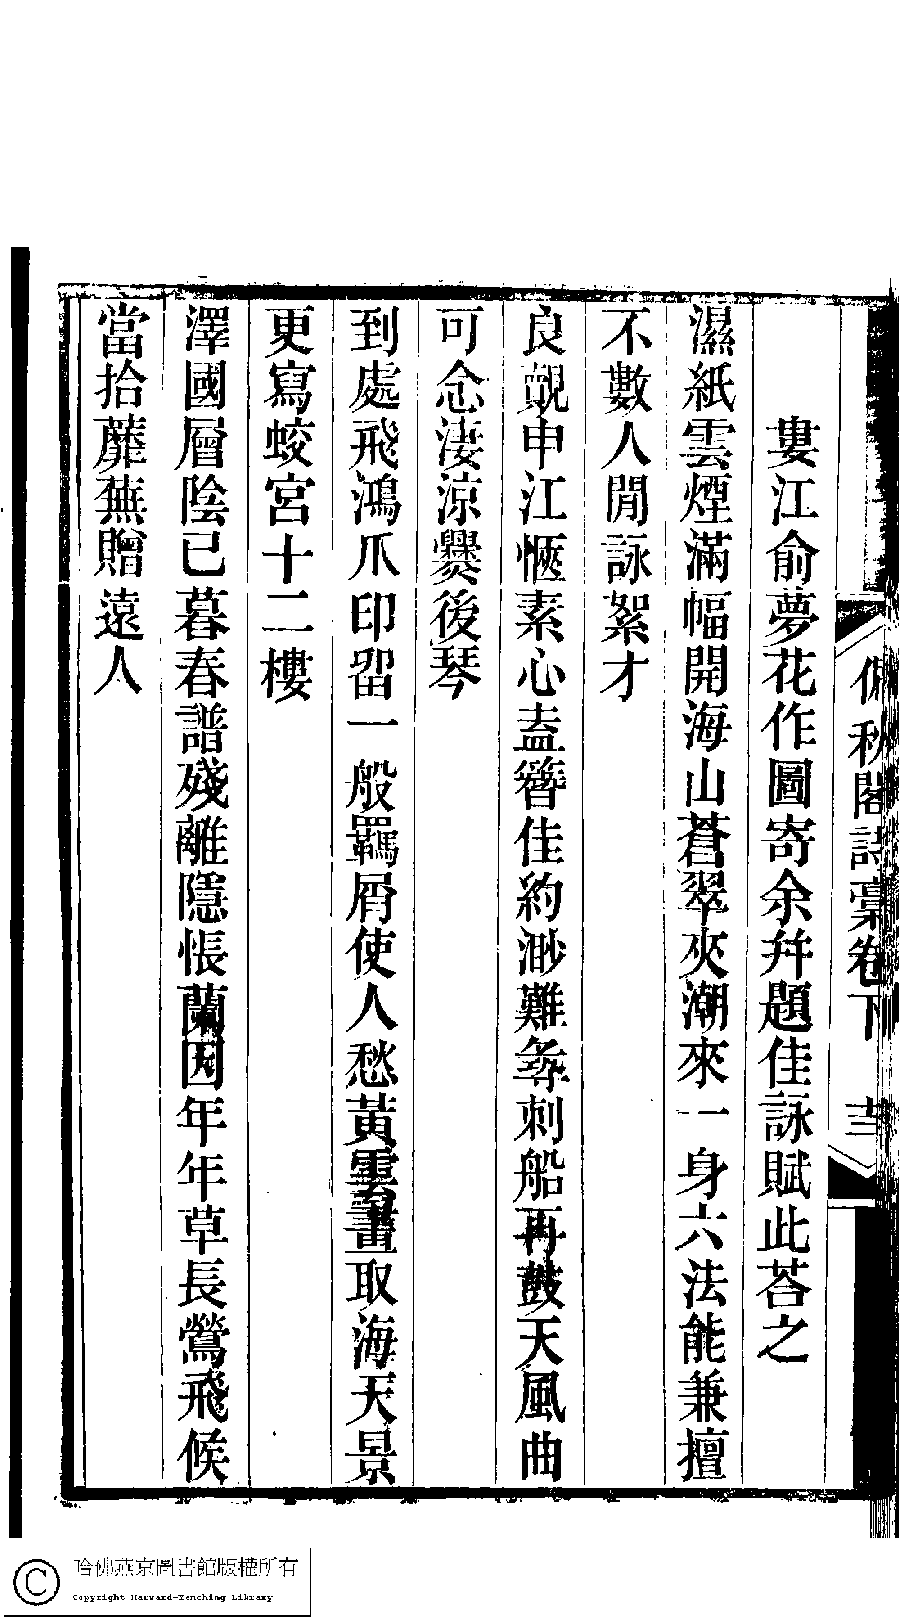 佩秋閣詩稾卷下
婁江俞夢花作圖寄余幷題佳詠賦此荅之
濕紙雲煙滿幅開海山蒼翠夾潮來一身六法能兼擅
不數人閒詠絮才
良覿申江愜素心盍簪佳約渺難尋刺船再鼓天風曲
可念淒涼爨後琴
到處飛鴻爪印留一般羈屑使人愁黃雲畫取海天景
更寫蛟宮十二樓
澤國層陰已暮春譜殘離隱悵蘭因年年草長鶯飛候
當拾蘼蕪贈遠人
哈佛燕京圖書館版權所有
Copyright Harvard-Yenching Library